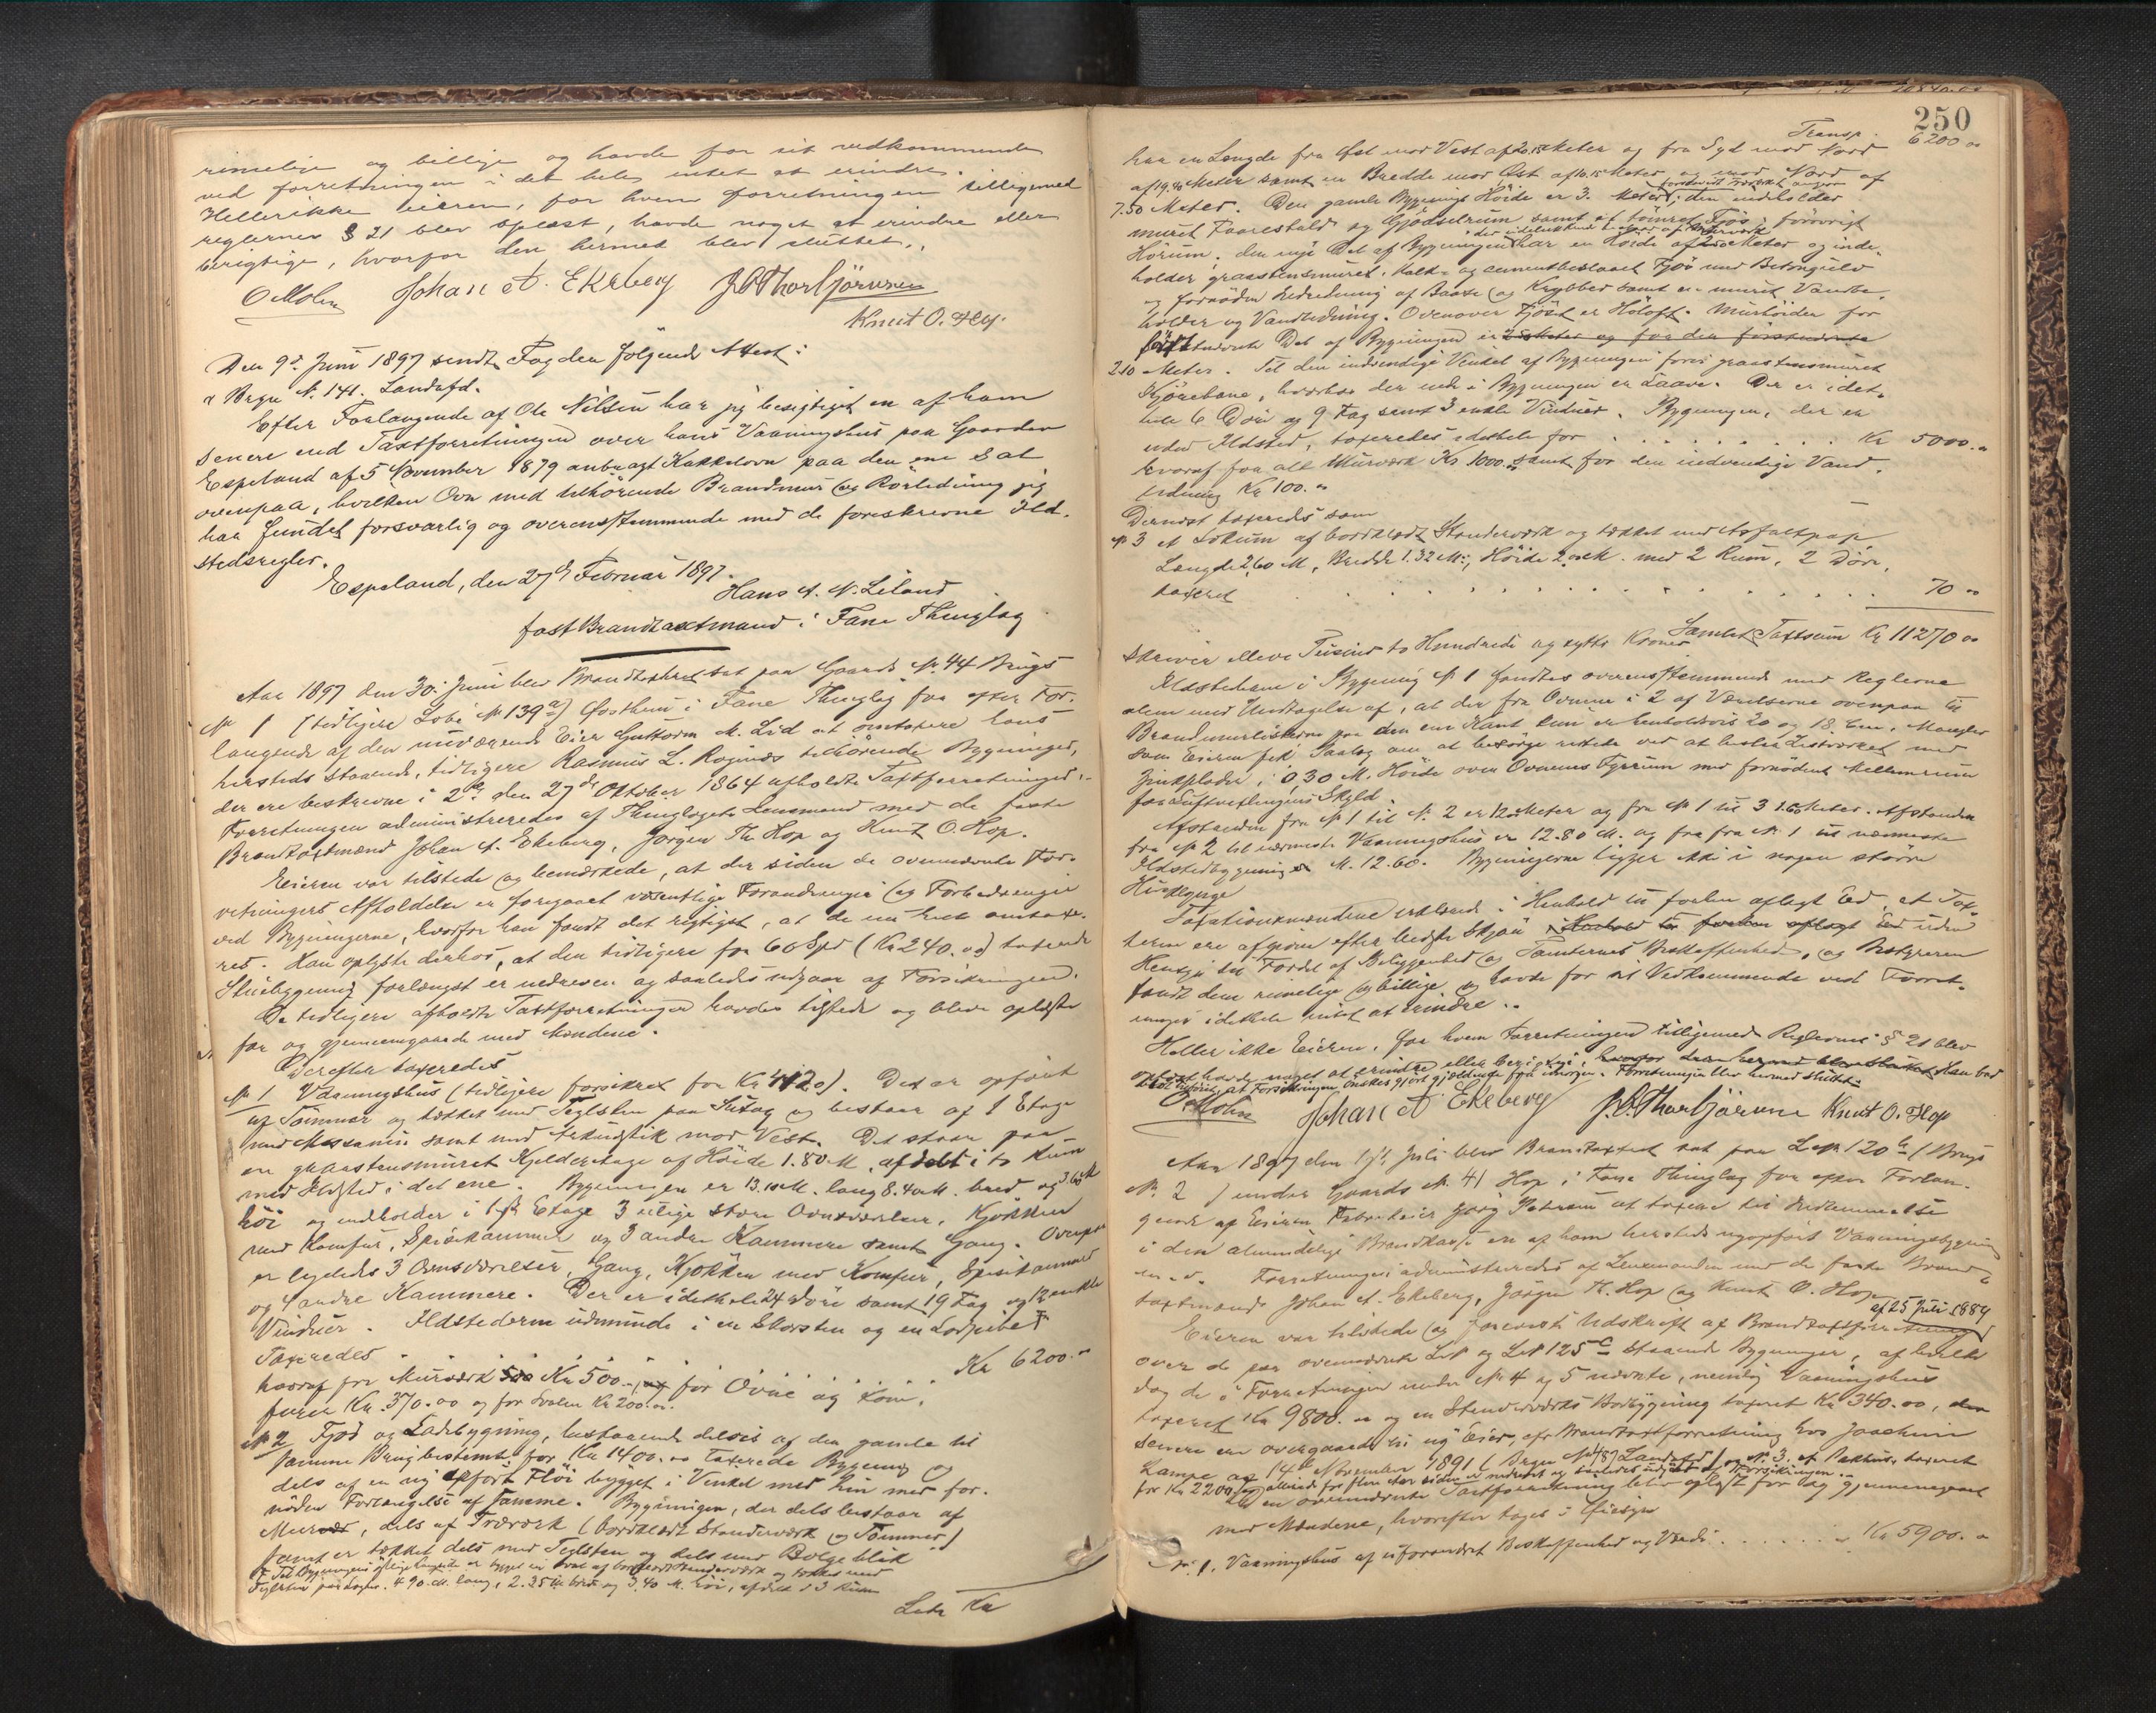 rimelige og billige og havde for sit vedkommende
ved forretningen i det hele intet at erindre.
Hellerikke eieren, for hvem forretningen tilligemed
reglernes § 21 blev oplæst, havde noget at erindre eller
berigtige, hvorfor den hermed blev sluttet.
O Molin Johan A. Ekeberg J Th Thorbjörnsen
Knut O. Hop.
Den 9de Juni 1897 sendte Fogden følgende Attest:
Brgn N. 141. Landafd.
Efter Forlangende af Ole Nilsen har jeg besigtiget en af ham
senere end Taxtforretningen over hans Vaaningshus paa Gaarden
Espeland af 5 November 1879 anbragt Kakkelovn paa den ene Sal
ovenpaa, hvilken Ovn med tilhørende Brandmur og Rørledning jeg
har fundet forsvarlig og overensstemmende med de foreskrevne Ild-
stedsregler.
Espeland, den 27de Februar 1897.
Hans A. N. Liland
fast Brandtaxtmand i Fane Thinglag
Aar 1897 den 30. Juni blev Brandtaxtret sat paa Gaards N. 44 Brugs
N. 1 (tidligere Løbe N. 139 a) Øvsthun i Fane Thinglag for efter For-
langende af den nuværende Eier Guttorm M. Lid at omtaxere hans
hersteds staaende, tidligere Rasmus L. tilhørende Bygninger,
der ere beskrevne i 2de den 27de Oktober 1864 afholdte Taxtforretninger.
Forretningen administreredes af Thinglagets Lensmand med de faste
Brandtaxtmænd Johan A. Ekeberg, Jørgen Th. Hop og Knut O. Hop.
Eieren var tilstede og bemærkede, at der siden de ovennævnte For-
retningers Afholdelse er foregaaet væsentlige Forandringer og Forbedringer
ved Bygningerne, hvorfor han fandt det rigtigst, at de nu helt omtaxe-
res. Han oplyste derhos, at den tidligere for 60 Spd (Kr 240.00) taxerede
Stuebygning forlængst er nedreven og saaledes udgaar af Forsikringen.
De tidligere afholdte Taxtforretninger havdes tilstede og bleve oplæste
for og gjennemgaaede med Mændene.
Derefter taxeredes
N. 1 Vaaningshus (tidligere forsikret for Kr 1120). Det er opført
af Tømmer og tækket med Teglsten paa Sutag og bestaar af 1 Etage
med Messanin samt med Arkudstik mod Vest. Det staar paa
en graastensmuret Kjelderetage af Høide 1.80 M. afdelt i to Rum
med Ildsted i det ene. Bygningen er 13.10 M. lang 8.40 M. bred og 3.65 M
høi og indholder i 1ste Etage 3 ulige store Ovnsværelser, Kjøkken
med Komfur, Spisekammer og 3 andre Kammere samt Gang. Ovenpaa
er ligeledes 3 Ovnsværelser, Gang, Kjøkken med Komfur, Spisekammer
og 4 andre Kammere. Der er i det hele 24 Døre samt 19 Fag og 12 enkle
Vinduer. Ildstederne udmunde i en Skorsten og en Lodpibe
Taxeredes . . . . . . . Kr 6200.00
hvoraf for Murværk Kr 500.00 for Ovne og Kom-
furer Kr. 370.00 og for Svalen Kr 200.00.
N. 2 Fjøs og Ladebygning, bestaaende delvis af den gamle til
samme Brug bestemte for Kr 1400.00 taxerede Bygning og
dels af en ny opført Fløi bygget i Vinkel med hin med for-
nøden Forlængelse af samme. Bygningen, der dels bestaar af
Mur, dels af Træværk (bordklædt Stenderværk og Tømmer)
samt er tækket dels med Teglsten og dels med Bølgeblik
Til Bygningens østlige Langside er bygget en Sval af bordklædt Stenderværk og tækket med
Teglsten paa Lægter. 4.90 M. lang, 2.35 M. bred og 3.40 M. høi, afdelt i 3 Rum
Lats Kr
250
Transp. 6200.00
har en Længde fra Øst mod Vest af 20.15 Meter og fra Syd mod Nord
af 19.90 Meter samt en Bredde mod Øst af 10.15 Meter og mod Nord af
7.50 Meter. Den gamle Bygnings Høide er 3. Meter; den indholder
muret Faarestald og Gjødselrum samt et tømret Fjøs, forøvrigt
Hørum. Den nye Del af Bygningen har en Høide af Meter og inde-
holder graastensmuret, kalk- og cementbeslaaet Fjøs med Betongulv
og fornøden Indredning af Baase og Krybber samt en muret Vandbe-
holder og Vandledning. Ovenover Fjøset er Høloft. Murhøiden for
sidstnævnte Del af Bygningen er Meter og for den førstnævnte
2.10 Meter. Til den indvendige Vinkel af Bygningen fører graastensmuret
Kjørebane, hvorhos der inde i Bygningen er Laave. Der er i det-
hele 6 Døre og 9 Fag samt 3 enkle Vinduer. Bygningen, der er
uden Ildsted, taxeredes i dethele for . . . . . . . Kr 5000.00
hvoraf for alt Murværk Kr 1000.00 samt for den indvendige Vand-
ledning Kr 100.00
Dernæst taxeredes som
N. 3 et Lokum af bordklædt Stenderværk og tækket med Asfaltpap
Længde 2.60 M, Bredde 1.32 M., Høide 2 M. med 2 Rum, 2 Døre,
taxeret . . . . . . . . . 70.00
Samlet Taxtsum Kr 11270.00
skriver elleve Tusinde to Hundrede og sytti Kroner.
Ildstederne i Bygning N. 1 fandtes overensstemmende med Reglerne
alene med Undtagelse af, at der fra Ovnene i 2 af Værelserne ovenpaa til
Brandmurlisterne paa den ene Kant kun er henholdsvis 20 og 18 Cm. Mangler
som Eieren fik Paalæg om at besørge rettede ved at beslaa Listværket med
Zinkplader, i 0,30 M. Høide over Ovnens Fyrrum med fornødent Mellemrum
for Luftvexlingens Skyld.
Afstanden fra N. 1 til N. 2 er 12 Meter og fra N. 1 til 3 1.60 Meter. Afstanden
fra N. 2 til nærmeste Vaaningshus er 12.80 M. og fra N. 1 til nærmeste
Ildstedbygning M. 12.60. Bygningerne ligger ikke i nogen større
Husklynge
Taxationsmændene erklærede i Henhold til forhen aflagt Ed, at Tax-
terne ere afgivne efter bedste Skjøn i Henhold til forhen aflagt Ed uden
Hensyn til Fordel af Beliggenhed og Tomternes Beskaffenhed, og Bestyreren
fandt dem rimelige og billige og havde for sit Vedkommende ved Forret-
ningen i dethele intet at erindre.
Heller ikke Eieren, for hvem Forretningen tilligemed Reglernes § 21 blev
oplæst havde noget at erindre eller berigtige, hvorfor den hermed blev sluttet. Han bad
tilført, at Forsikringen ønskes gjort gjældende fra imorgen. Forretningen blev hermed sluttet.
O. Molin Johan A Ekeberg J. Th Thorbjörnsen Knut O. Hop
Aar 1897 den Juli blev Brandtaxtret sat paa LN 120 (Brugs
N. 2 ) under Gaards N. 41 Hop i Fane Thinglag for efter Forlan-
gende af Eieren, Fabrikeier Georg Petersen at taxere til Indlemmelse
i den almindelige Brandkasse en af ham hersteds nyopført Vaaningsbygning
m. v. Forretningen administreredes af Lensmanden med de faste Brand-
taxtmænd Johan A. Ekeberg, Jørgen Th. Hop og Knut O. Hop
Eieren var tilstede og foreviste Udskrift af Brandtaxtforretning af 25 Juli 1884
over de paa ovennævnte LN og LN 125 c staaende Bygninger, af hvilke
dog de i Forretningen under N. 4 og 5 nævnte, nemlig Vaaningshus
taxeret Kr 9800.00 og en Stenderværks Bodbygning taxeret Kr. 340.00,
senere ere overgaaede til ny Eier, cfr Brandtaxtforretning hos Joachim
Lampe af 14de November 1891 (Brgn N. 487 Landafd) og N. 3. et Pakhus, taxeret
for Kr 2200.00 allerede for flere Aar siden er nedrevet og saaledes udgaaet af Forsikringen.
Den ovennævnte Taxtforretning blev oplæst for og gjennemgaaet
med Mændene, hvorefter toges i Øiesyn
N. 1. Vaaningshus af uforandret Beskaffenhed og Værdi . . . . . . Kr 5900.00